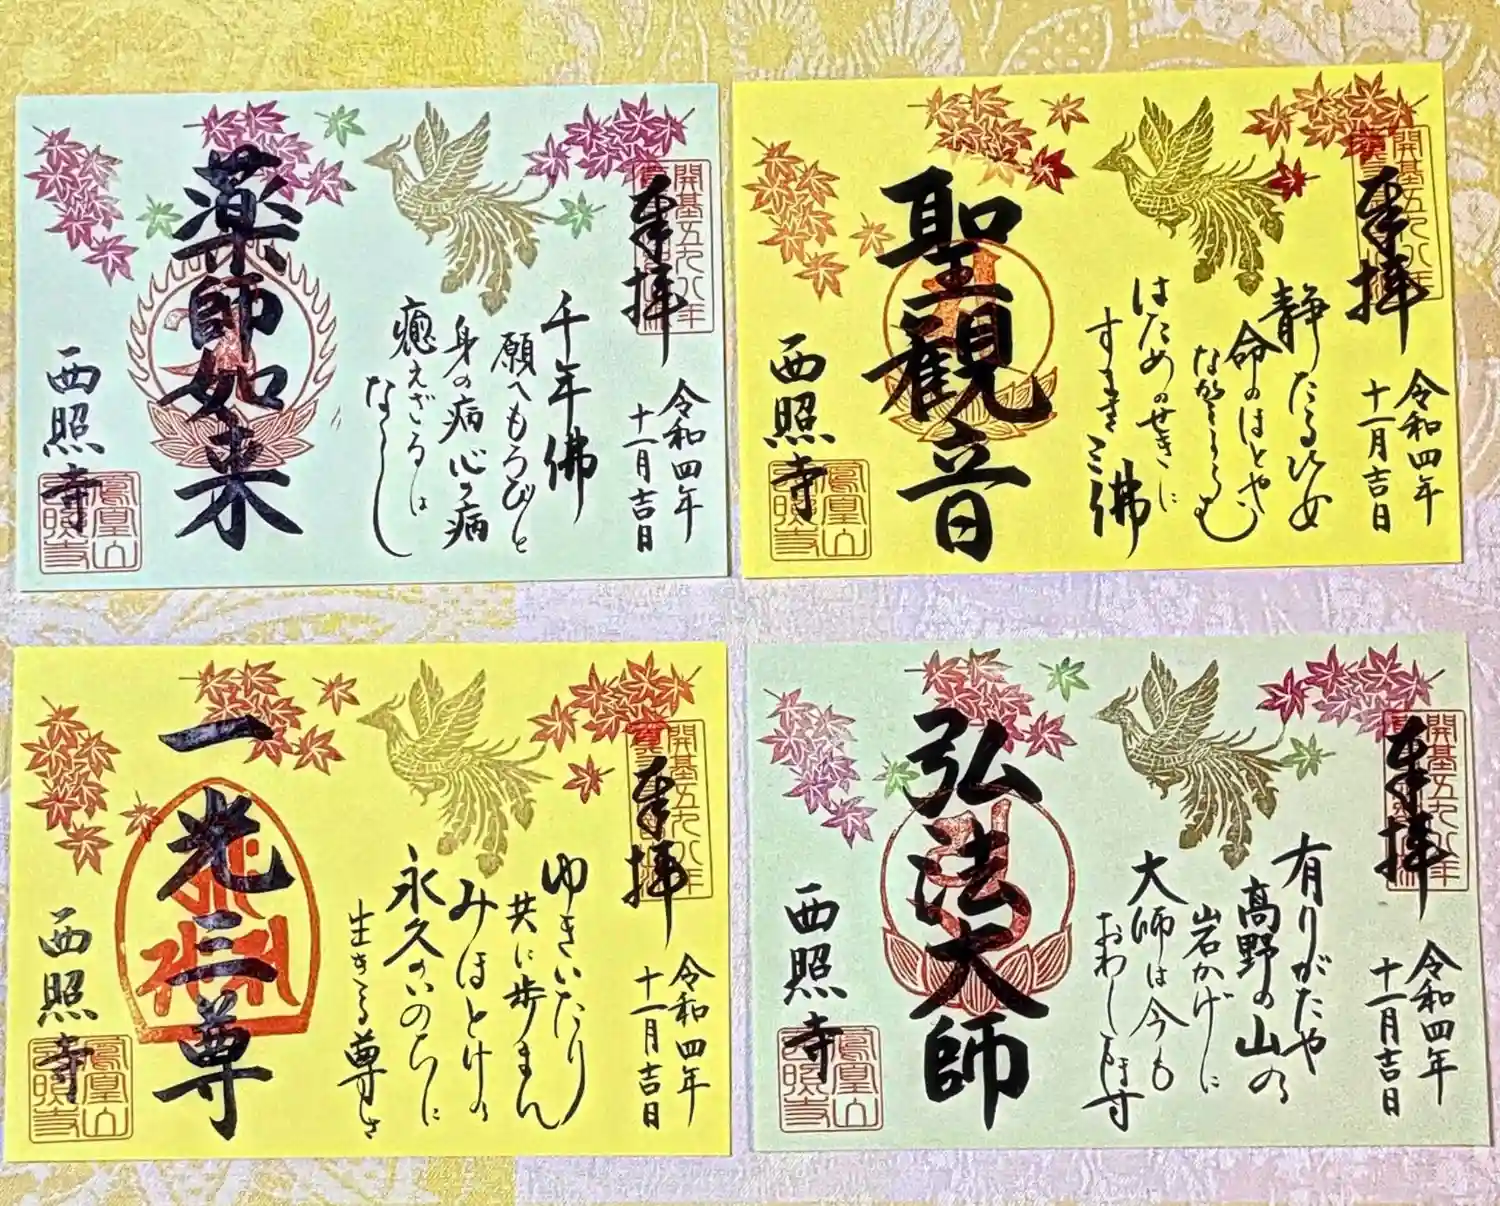 奉拝
開基五九八年
令和四年
十一月吉日
千年佛
願へもろびと
身の病心の病
癒えざるは
なし
薬師如来
西照寺
鳳凰山
西照寺
奉拝
開基五九八年
令和四年
十一月吉日
静かなるひめ
命のはとや
はためのせきに
三佛
聖観音
西照寺
鳳凰山
西照寺
奉拝
開基五九八年
令和四年
十一月吉日
ゆきいたり
共に歩まん
みほとけの
永久のいのちに
生きる尊さ
一光三尊
西照寺
鳳凰山
西照寺
奉拝
開基五九八年
令和四年
十一月吉日
有りがたや
高野の山の
岩かげに
大師は今も
おわします
弘法大師
西照寺
鳳凰山
西照寺